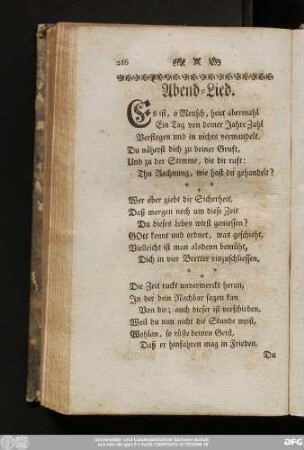 216
Abend-Lied.
Es ist, o Mensch, heut abermahl
Ein Tag von deiner Jahre Zahl
Verflogen und in nichts verwandelt.
Du näherst dich zu deiner Gruft,
Und zu der Stimme, die dir ruft:
Thu Rechnung, wie hast du gehandelt?
Wer aber giebt dir Sicherheit,
Daß morgen noch um diese Zeit
Du dieses Leben wirst geniessen?
GOtt kennt und ordnet, was geschieht,
Vielleicht ist man alsdenn bemüht,
Dich in vier Bretter einzuschliessen.
* * *
Die Zeit ruckt unvermerckt herum,
In der dein Nachbar sagen kan
Von dir: auch dieser ist verschieden.
Weil du nun nicht die Stunde weist,
Wohlan, so rüste deinen Geist,
Daß er hinfahren mag in Frieden.
Du